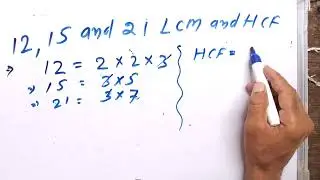 12, 15 and 21 LCM and HCF
⇒ 12 = 2 × 2 × 3
⇒ 15 = 3 × 5
⇒ 21 = 3 × 7
HCF =